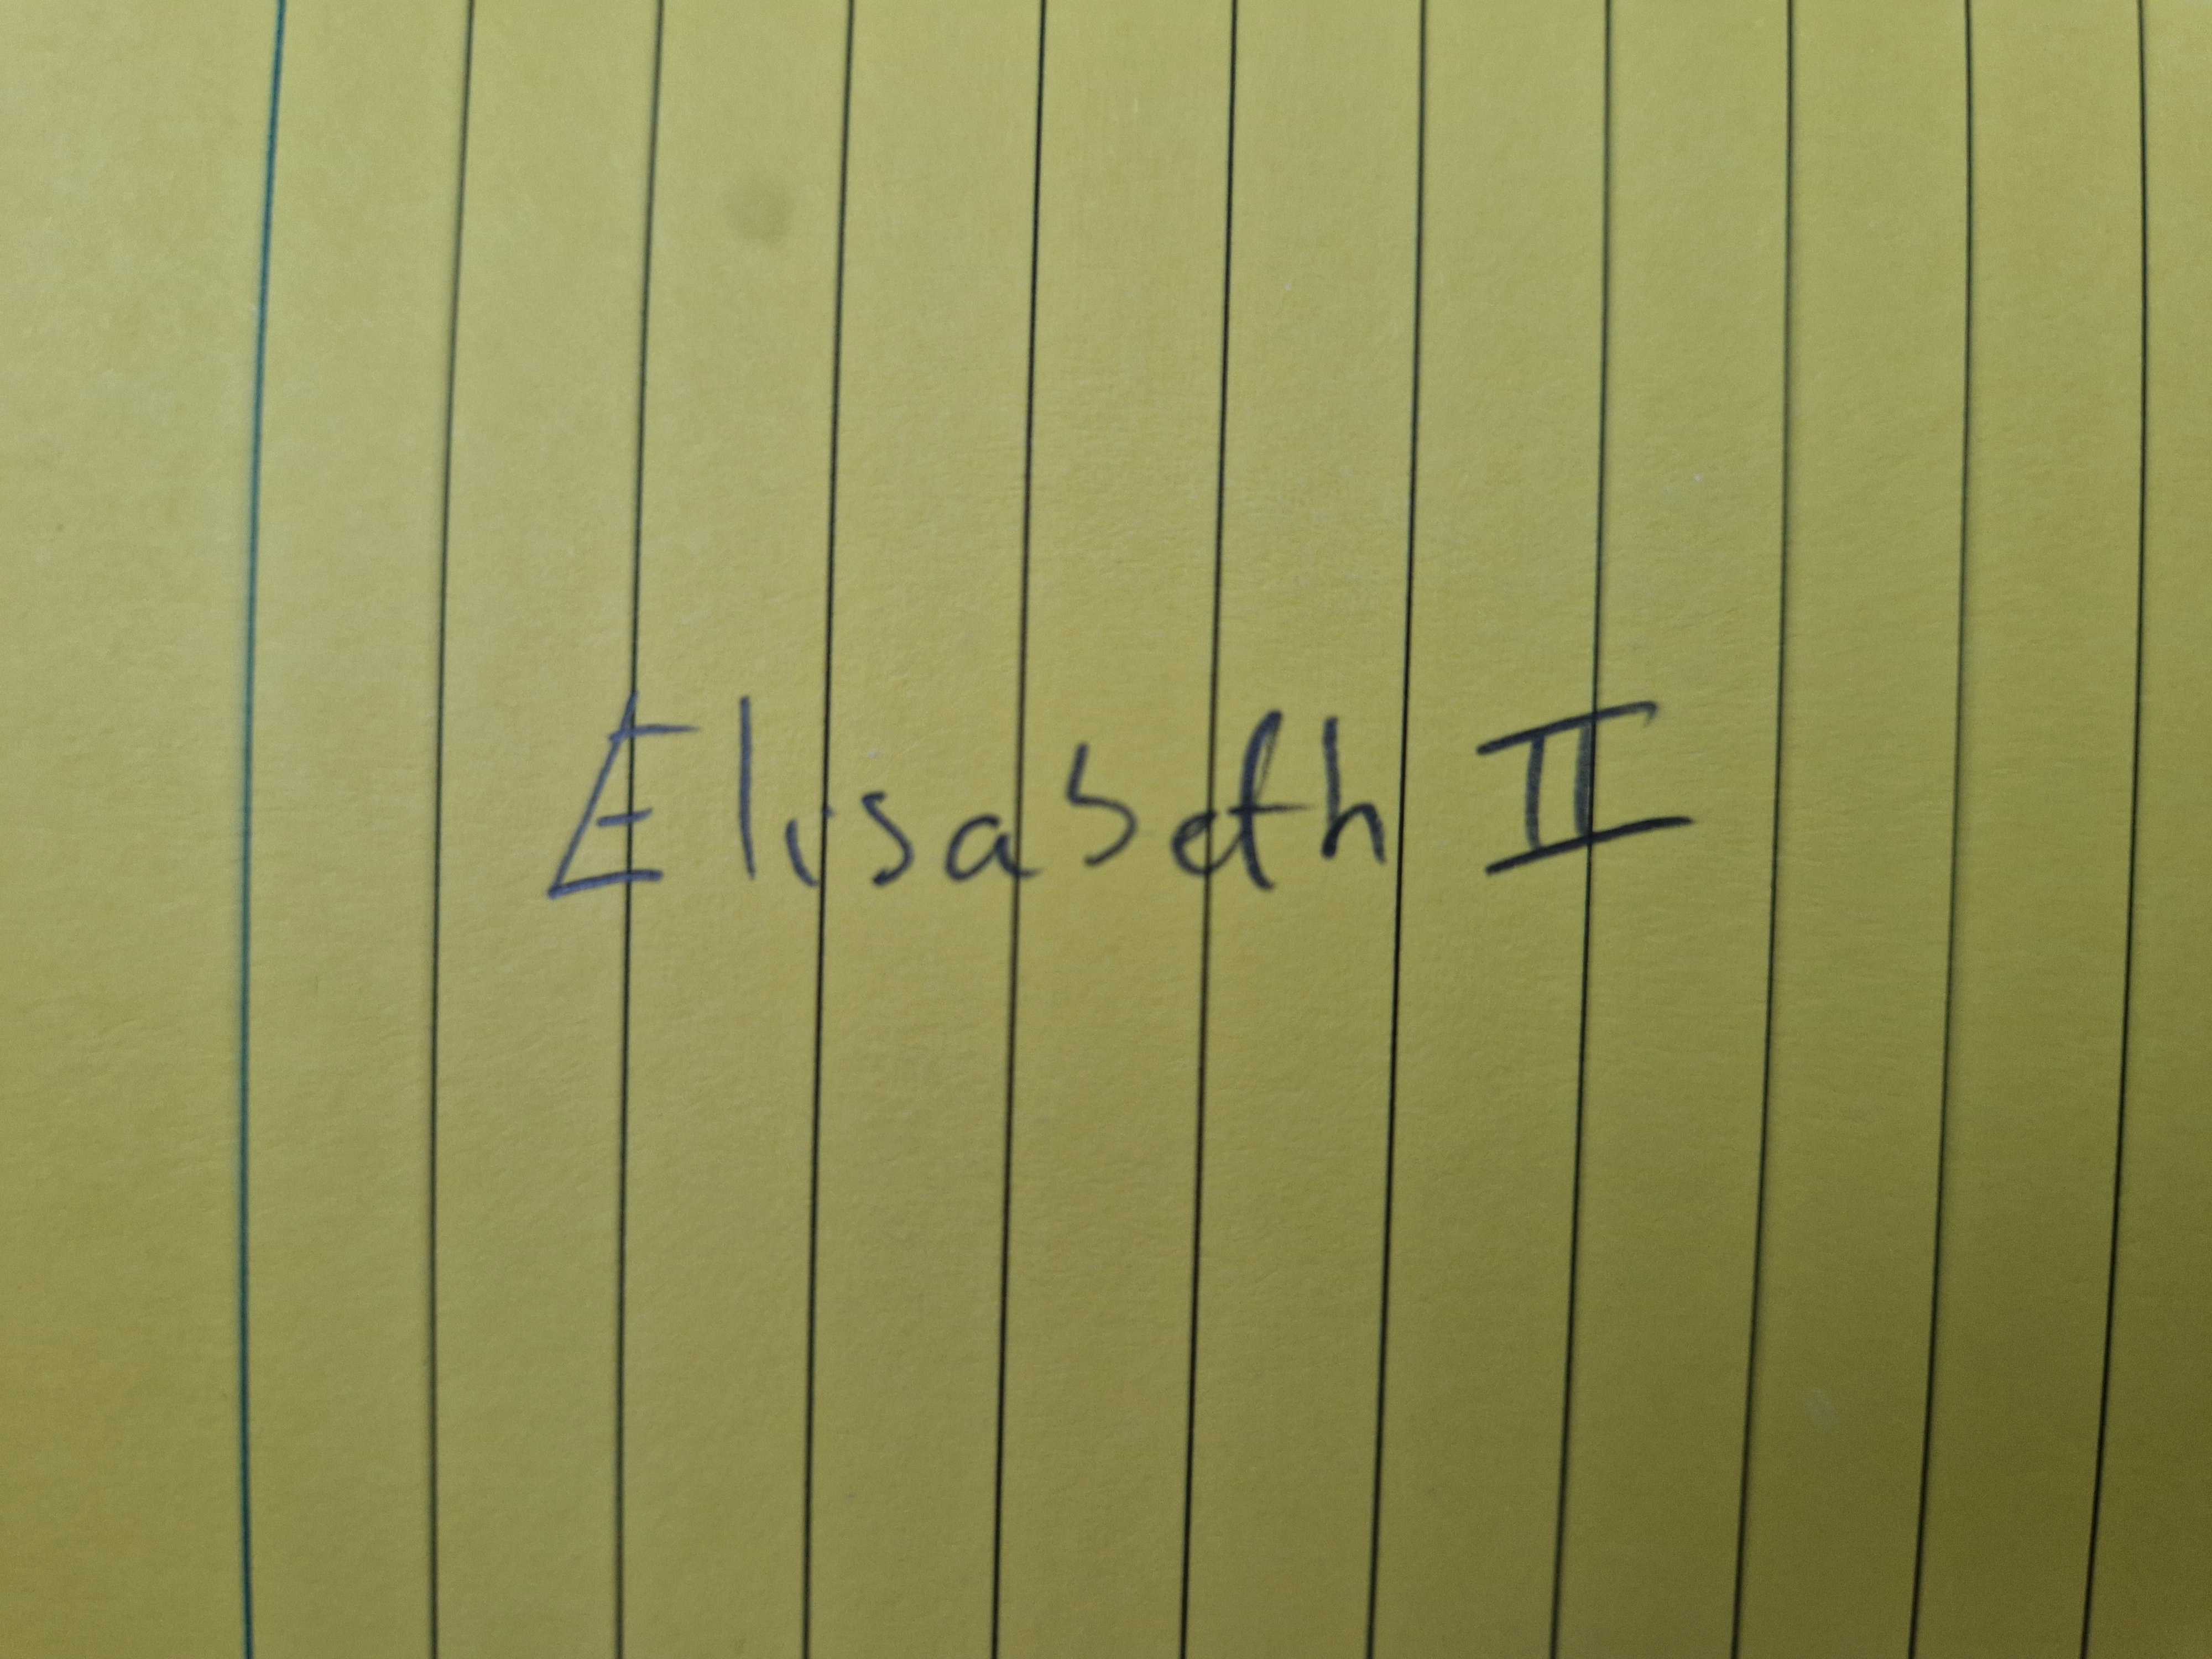 Elisabeth II